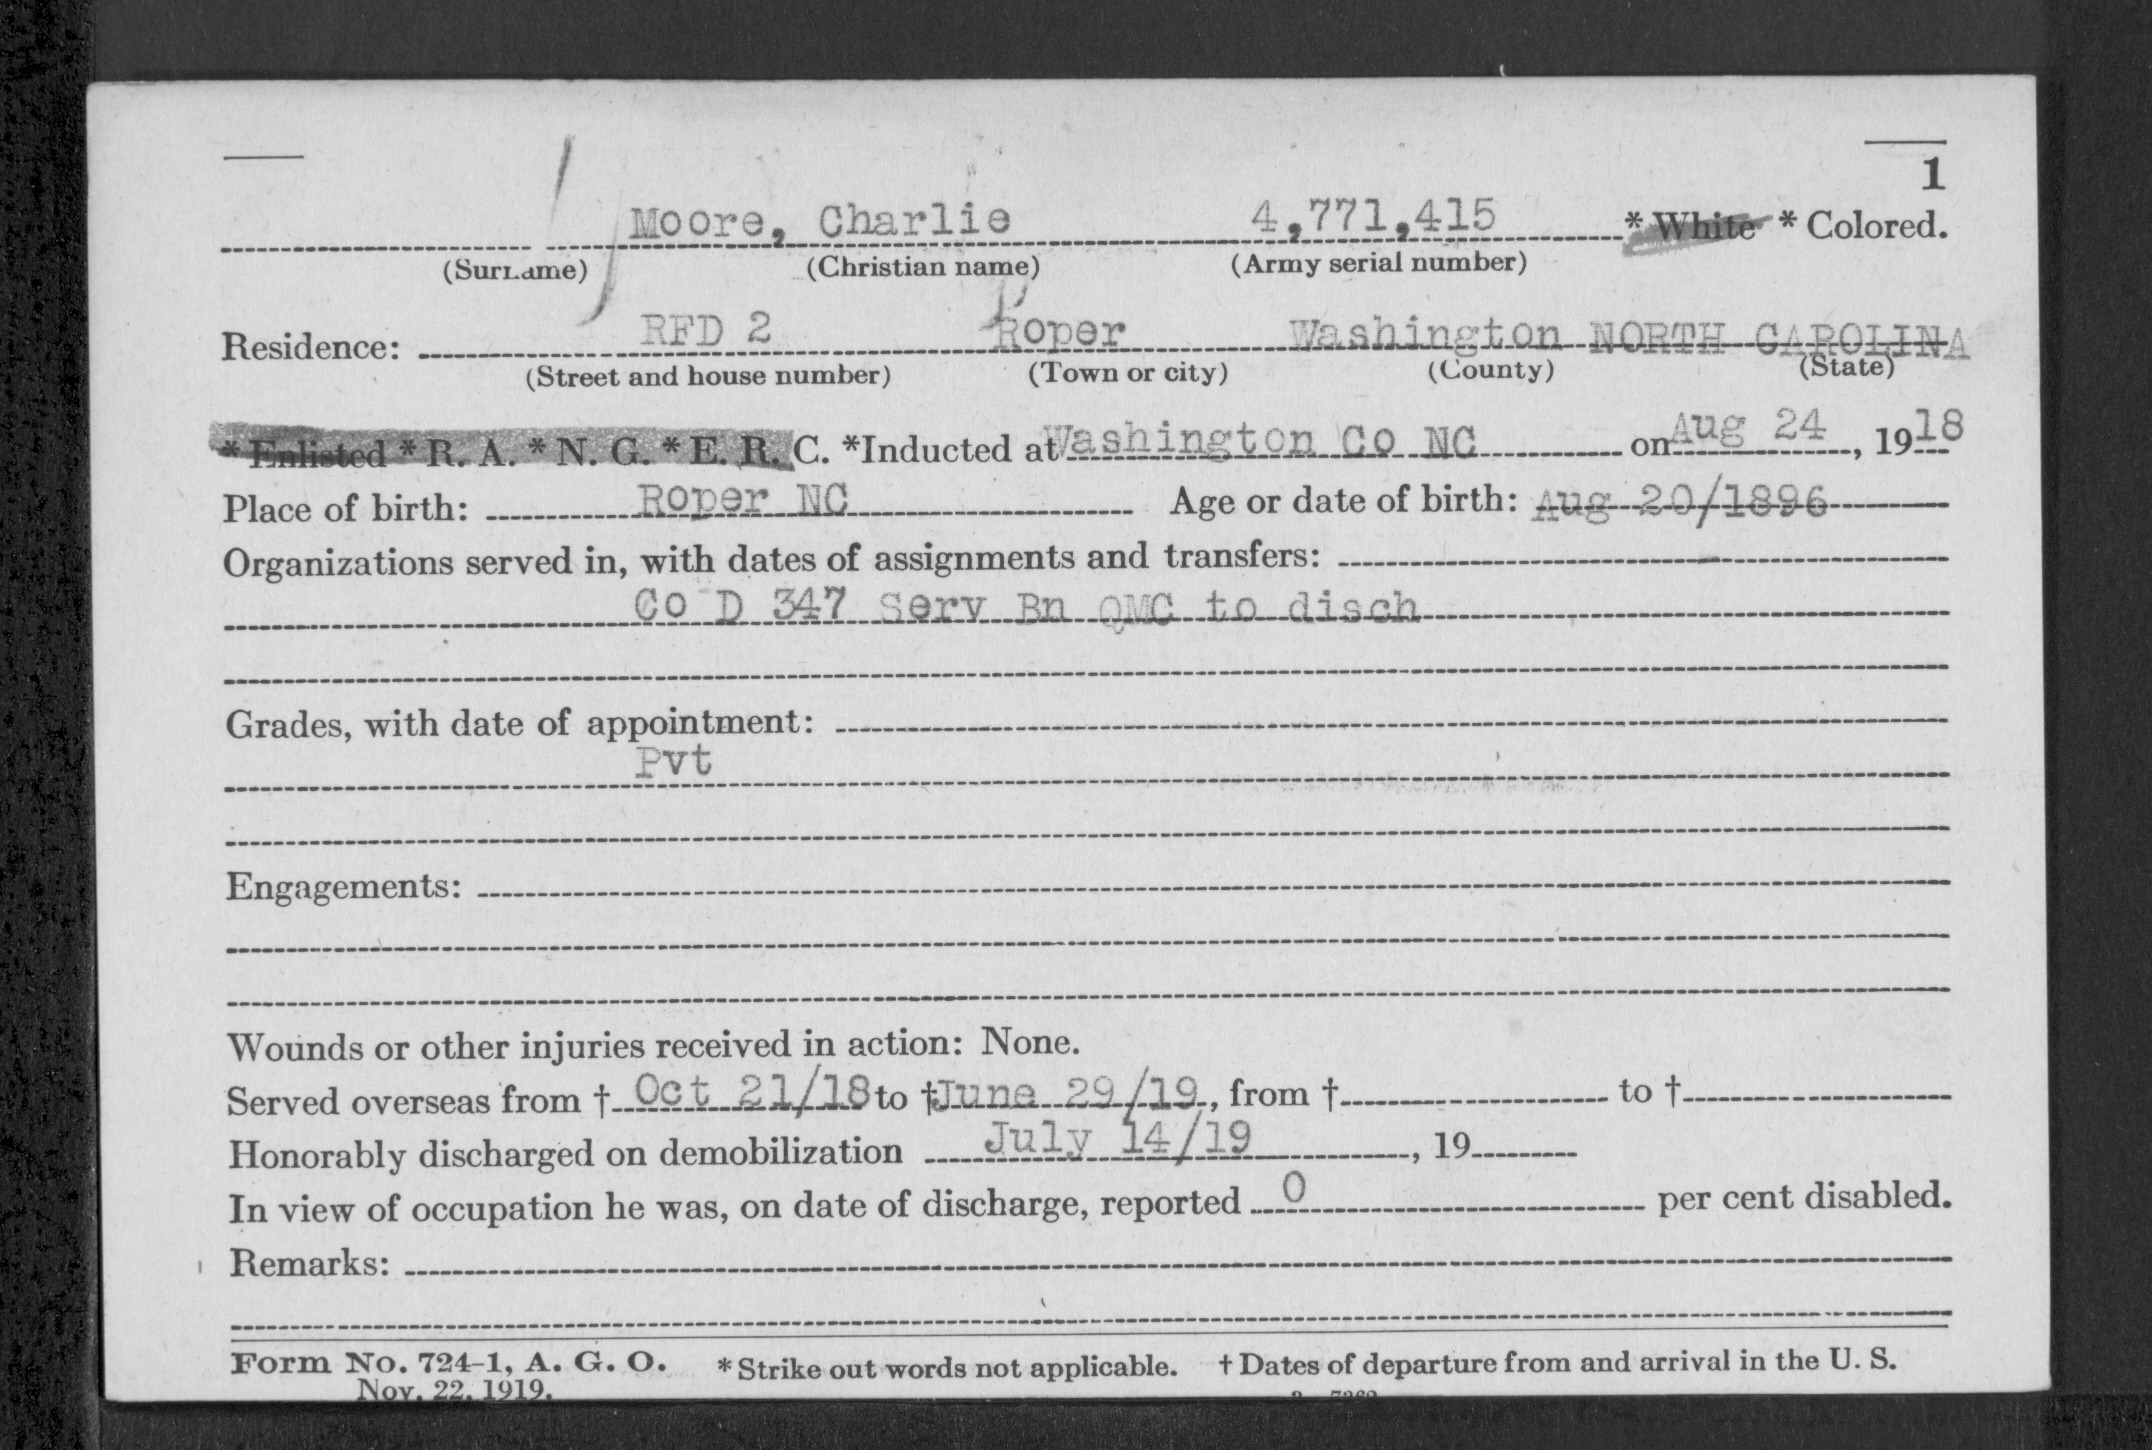 1
Moore, Charlie 4,771,415 * White * Colored.
(Surname) (Christian name) (Army serial number)
Residence: RFD 2 Roper Washington NORTH CAROLINA
(Street and house number) (Town or city) (County) (State)
* Enlisted * R. A. * N. G. * E. R. C. *Inducted at Washington Co NC on Aug 24, 1918
Place of birth: Roper NC Age or date of birth: Aug 20/1896
Organizations served in, with dates of assignments and transfers:
Co D 347 Serv Bn QMC to disch
Grades, with date of appointment:
Pvt
Engagements:
Wounds or other injuries received in action: None.
Served overseas from † Oct 21/18 to † June 29/19, from † to †
Honorably discharged on demobilization July 14/19, 19
In view of occupation he was, on date of discharge, reported 0 per cent disabled.
Remarks:
Form No. 724-1, A. G. O. * Strike out words not applicable. † Dates of departure from and arrival in the U. S.
Nov. 22, 1919.